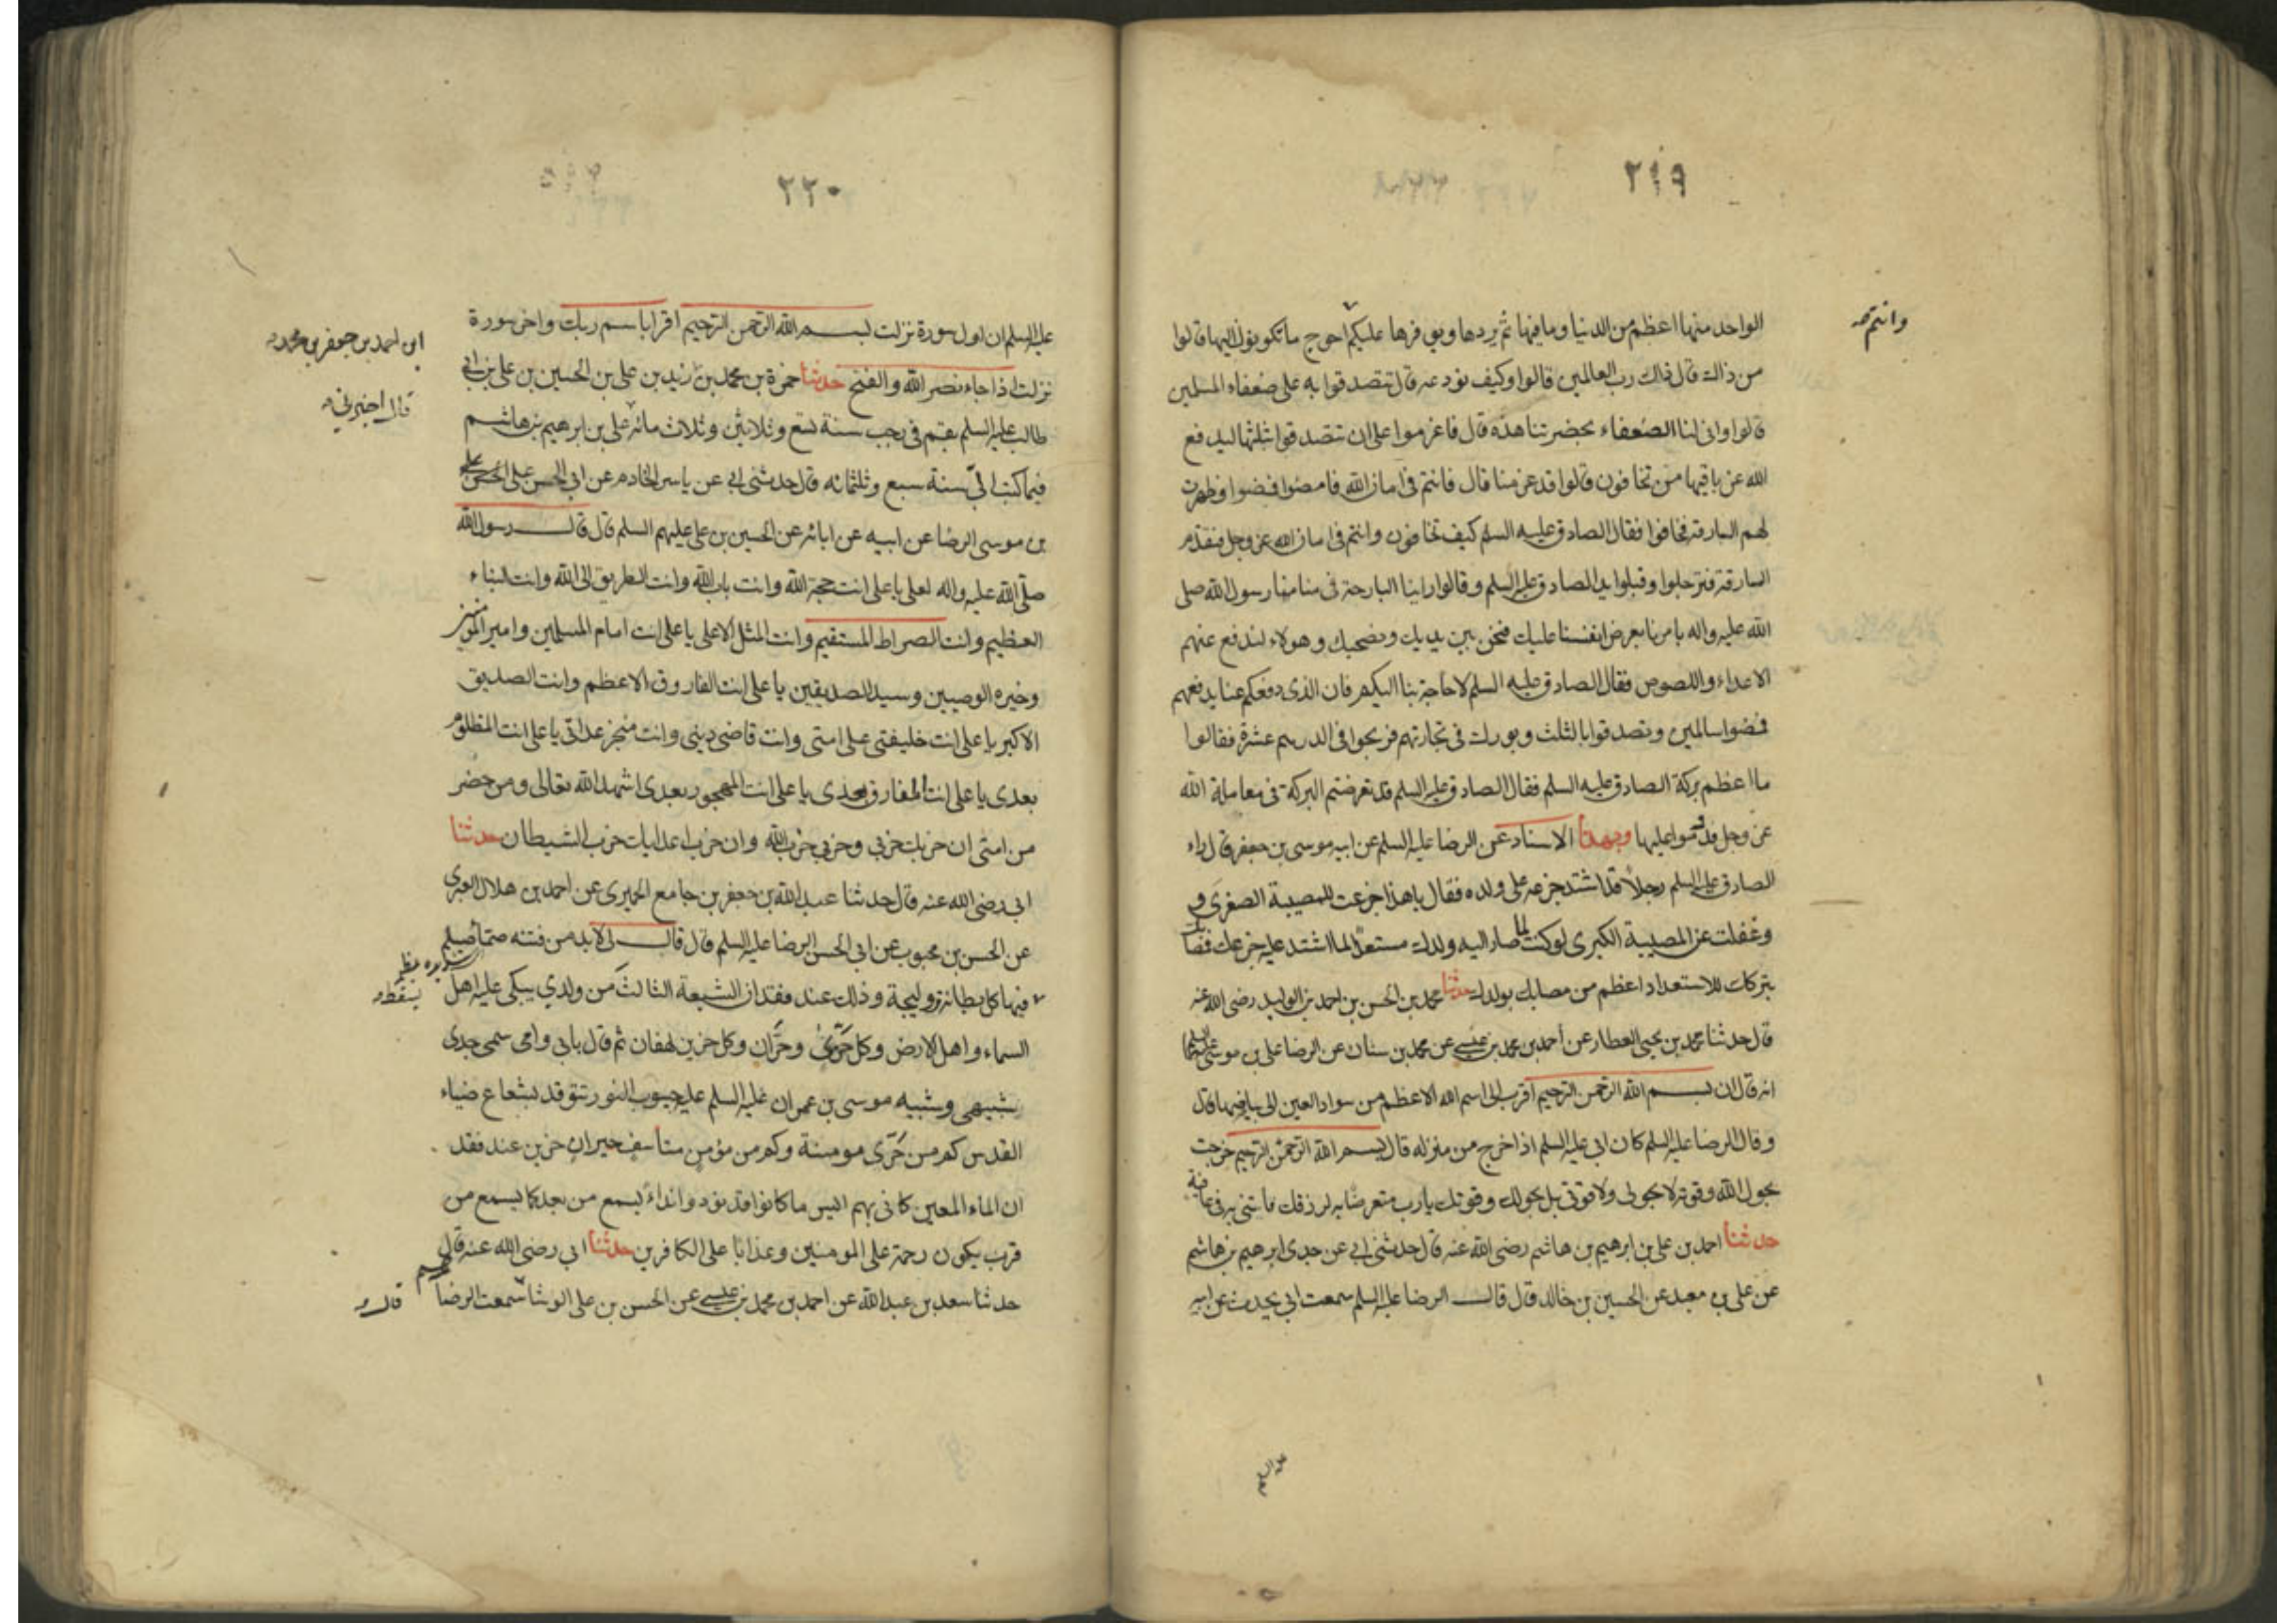 ٢١٩
الواحد منها اعظم من الدنيا وما فيها ثم يردها ويوفرها عليكم احوج ما تكونون اليها قالوا
وانتم صح
من ذاك قال ذاك رب العالمين قالوا وكيف نودعه قال تتصدقوا به على ضعفاء المسلمين
قالوا وانى لنا الضعفاء بحضرتنا هذه قال فاعزموا على ان تتصدقوا بثلثها ليدفع
الله عن باقيها من تخافون قالوا قد عزمنا قال فانتم فى امان الله فامضوا فمضوا وظهرت
لهم البارقة فخافوا فقال الصادق عليه السلم كيف تخافون وانتم فى امان الله عز وجل فتقدم
البارقة فترجلوا وقبلوا يد الصادق عليه السلم وقالوا راينا البارحة فى منامنا رسول الله صلى
الله عليه واله يامرنا بعرض انفسنا عليك فنحن بين يديك ونصحبك وهولاء لندفع عنهم
الاعداء واللصوص فقال الصادق عليه السلم لا حاجة بنا اليكم فان الذى دفعكم عنا يدفعهم
فمضوا سالمين وتصدقوا بالثلث وبورك فى تجارتهم فربحوا فى الدرهم عشرة فقالوا
ما اعظم بركة الصادق عليه السلم فقال الصادق عليه السلم قد تعرفتم البركة فى معاملة الله
عز وجل فدوموا عليها وبهذا الاسناد عن الرضا عليه السلم عن ابيه موسى بن جعفر قال راى
الصادق عليه السلم رجلا قد اشتد جزعه على ولده فقال يا هذا جزعت للمصيبة الصغرى و
وغفلت عن المصيبة الكبرى لو كنت لما صار اليه ولدك مستعدا لما اشتد عليه جزعك فمصابك
بتركك للاستعداد اعظم من مصابك بولدك حدثنا محمد بن الحسن بن احمد بن الوليد رضى الله عنه
قال حدثنا محمد بن يحيى العطار عن احمد بن محمد بن عيسى عن محمد بن سنان عن الرضا على بن موسى عليهما السلم
انه قال ان بسم الله الرحمن الرحيم اقرب الى اسم الله الاعظم من سواد العين الى بياضها قال
وقال الرضا عليه السلم كان ابى عليه السلم اذا خرج من منزله قال بسم الله الرحمن الرحيم خرجت
بحول الله وقوته لا بحولى ولا قوتى بل بحولك وقوتك يا رب متعرضا به لرزقك فأتنى به فى عافية
حدثنا احمد بن على بن ابرهيم بن هاشم رضى الله عنه قال حدثنى ابى عن جدى ابرهيم بن هاشم
عن على بن معبد عن الحسين بن خالد قال قال الرضا عليه السلم سمعت ابى يحدث عن ابيه
عليه السلم
٢٢٠
عليه السلم ان اول سورة نزلت بسم الله الرحمن الرحيم اقرا باسم ربك واخر سورة
ابن احمد بن جعفر بن محمد
نزلت اذا جاء نصر الله والفتح حدثنا حمزة بن محمد بن زيد بن على بن الحسين بن على بن ابى
قال اخبرنى
طالب عليه السلم بقم فى رجب سنة تسع وثلاثين وثلاث مائه على بن ابرهيم بن هاشم
فيما كتب الى سنة سبع وثلثمائه قال حدثنى ابى عن ياسر الخادم عن ابى الحسن على
بن موسى الرضا عن ابيه عن ابائه عن الحسين بن على عليهم السلم قال قال رسول الله
صلى الله عليه واله لعلى يا على انت حجة الله وانت باب الله وانت الطريق الى الله وانت النباء
العظيم وانت الصراط المستقيم وانت المثل الاعلى يا على انت امام المسلمين وامير المؤمنين
وخيره الوصيين وسيد الصديقين يا على انت الفاروق الاعظم وانت الصديق
الاكبر يا على انت خليفتى على امتى وانت قاضى دينى وانت منجز عداتى يا على انت المظلوم
بعدى يا على انت المفارق بعدى يا على انت المهجور بعدى اشهد الله تعالى ومن حضر
من امتى ان حزبك حزبى وحزبى حزب الله وان حزب اعدايك حزب الشيطان حدثنا
ابى رضى الله عنه قال حدثنا عبد الله بن جعفر بن جامع الحميرى عن احمد بن هلال العبرى
عن الحسن بن محبوب عن ابى الحسن الرضا عليه السلم قال قال لى لا بد من فتنه صماء صيلم
يسقط
فيها كل بطانة ووليجة وذلك عند فقدان الشيعة الثالث من ولدي يبكى عليه اهل
السماء واهل الارض وكل حرى وحران وكل حزين لهفان ثم قال بابى وامى سمى جدى
شبيهى وشبيه موسى بن عمران عليه السلم عليه جيوب النور تتوقد بشعاع ضياء
القدس كم من حرى مومنة وكم من مؤمن متاسف حيران حزين عند فقد
ان الماء المعين كانى بهم ايس ما كانوا قد نودوا نداء يسمع من بعد كما يسمع من
قرب يكون رحمة على المومنين وعذابا على الكافرين حدثنا ابى رضى الله عنه قال
حدثنا سعد بن عبد الله عن احمد بن محمد بن عيسى عن الحسن بن على الوشا سمعت الرضا
قال